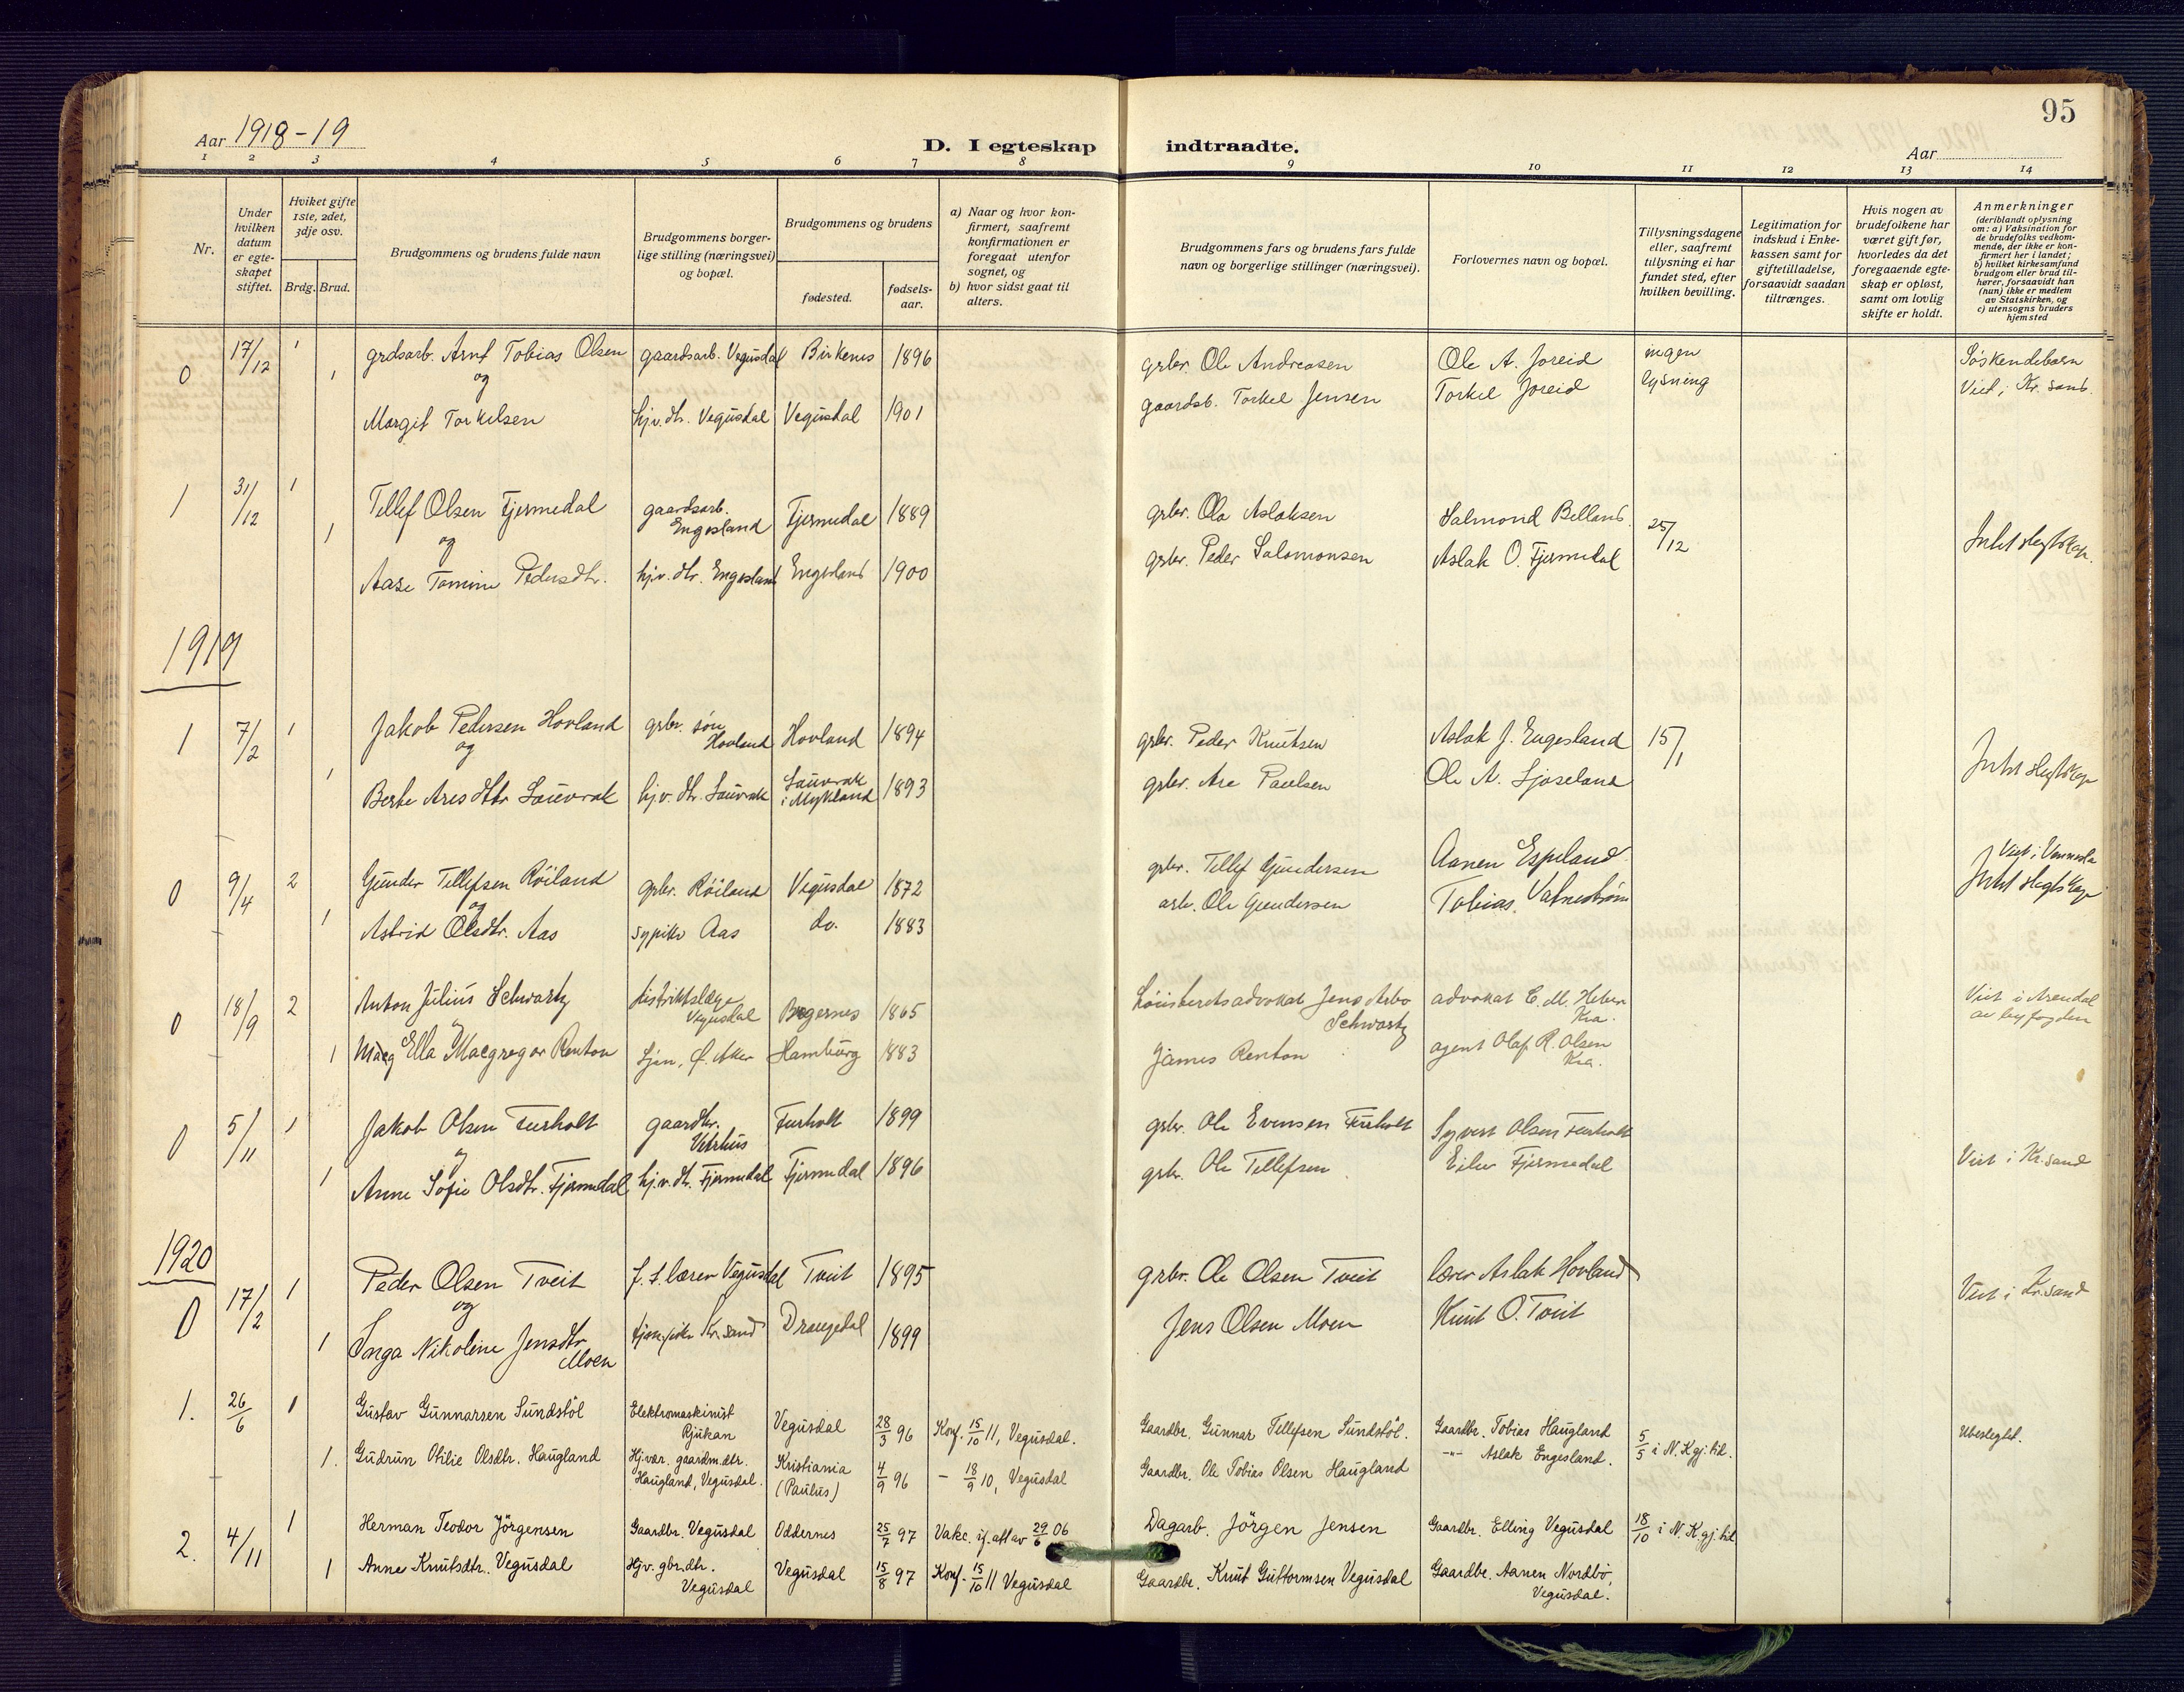 95
Aar 1918-19
D. I egteskap indtraadte.
Aar
1 2 3 4 5 6 7 8 9 10 11 12 13 14
Nr.
Under hvilken datum er egteskapet stiftet.
Hviket gifte 1ste, 2det, 3dje osv.
Brdg. Brud.
Brudgommens og brudens fulde navn
Brudgommens borgerlige stilling (næringsvei) og bopæl.
Brudgommens og brudens
fødested.
fødselsaar.
a) Naar og hvor konfirmert, saafremt konfirmationen er foregaat utenfor sognet, og
b) hvor sidst gaat til alters.
Brudgommens fars og brudens fars fulde navn og borgerlige stillinger (næringsvei).
Forlovernes navn og bopæl.
Tillysningsdagene eller, saafremt tillysning ei har fundet sted, efter hvilken bevilling.
Legitimation for indskud i Enkekassen samt for giftetilladelse, forsaavidt saadan tiltrænges.
Hvis nogen av brudefolkene har været gift før, hvorledes da det foregaaende egteskap er opløst, samt om lovlig skifte er holdt.
Anmerkninger
(deriblandt oplysning om: a) Vaksination for de brudefolks vedkommende, der ikke er konfirmert her i landet; b) hvilket kirkesamfund brudgom eller brud tilhører, forsaavidt han (hun) ikke er medlem av Statskirken, og c) utensogns bruders hjemsted
0 17/12 1 grdsarb. Arnt Tobias Olsen gaardsarb. Vegusdal Birkenes 1896 grbr. Ole Andreasen Ole A. Joreid ingen lysning Søskendebarn
og
1 Margit Torkelsen hjv. dtr. Vegusdal Vegusdal 1901 gaardsb. Torkel Jensen Torkel Joreid Viet i Kr.sand.
1 31/12 1 Tellef Olsen Fjermedal gaardsarb. Engesland Fjermedal 1889 grbr. Ola Aslaksen Salmond Belland 25/12 Intet slegtskap.
og
1 Aase Tomine Pedersdtr. hjv. dtr. Engesland Engesland 1900 grbr. Peder Salomonsen Aslak O. Fjermedal
1919
1 7/2 1 Jakob Pedersen Hovland grbr. søn Hovland Hovland 1894 grbr. Peder Knutsen Aslak J. Engesland 15/1 Intet slegtskap
og
1 Berte Aresdtr Sauvrak hjv. dtr. Sauvrak Sauvrak i Mykland 1893 grbr. Are Paulsen Ole A. Ljoseland
0 9/4 2 Gunder Tellefsen Röiland grbr. Röiland Vegusdal 1872 grbr. Tellef Gundersen Aanen Espeland Viet i Vennesla
og
1 Astrid Olsdtr. Aas sypike Aas do. 1883 arb. Ole Gundersen Tobias Vatnestrøm Intet slegtskap
0 18/9 2 Anton Julius Schwartz distriktslæge Vegusdal 1865 advokat Jens Arbo Schwartz advokat C. M. Kra. Viet i Arendal av byfogden
1 Ella Macgregor Renton Ø. Aker Hamburg 1883 James Renton agent Olaf R. Olsen Kra.
0 5/11 1 Jakob Olsen Furholt gaardbr. Vetrhus Furholt 1899 grbr. Ole Evensen Furholt Syvert Olsen Furholt
og
1 Anne Sofie Olsdtr. Fjermedal hj.v. dtr. Fjermedal Fjermedal 1896 grbr. Ole Tellefsen Eilev Fjermedal Viet i Kr.sand
1920
0 17/2 1 Peder Olsen Tveit f. t. lærer Vegusdal Tveit 1895 grbr. Ole Olsen Tveit lærer Aslak Hovland Viet i Kr.sand
og
1 Inga Nikoline Jensdtr Moen tjenepike Kr.sand Drangedal 1899 Jens Olsen Moen Knut O. Tveit
1. 26/6 1 Gustav Gunnarsen Sundstöl Elektromaskinist Rjukan Vegusdal 28/3 96 Konf. 15/10 11, Vegusdal. Gaardbr. Gunnar Tellefsen Sundstöl. Gaardbr. Tobias Haugland 5/5 i N.K.gj.tid. Ubeslegtet.
1. Gudrun Otilie Olsdtr. Haugland Hj.vær. gaardm.dtr. Haugland, Vegusdal. Kristiania (Paulus) 4/9 96 - 18/9 10, Vegusdal Gaardbr. Ole Tobias Olsen Haugland -"- Aslak Engesland.
2. 4/11 1 Herman Teodor Jörgensen Gaardbr. Vegusdal Oddernes 25/7 97 Vakc. if. att av 29/6 06 Dagarb. Jörgen Jensen Gaardbr. Elling Vegusdal 18/10 i N.K.gj.tid
1 Anne Knutsdtr. Vegusdal Hjv. gbr.dtr. Vegusdal Vegusdal 15/8 97 Konf. 15/10 11 Vegusdal Gaardbr. Knut Guttormsen Vegusdal Gaardbr. Aanen Nordbö, Vegusdal.